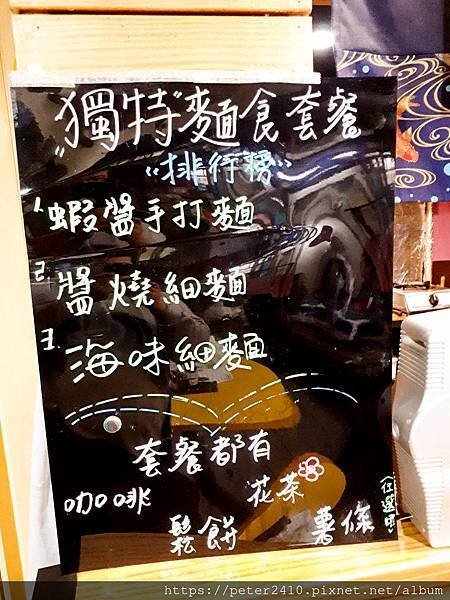 "獨特"麵食套餐
"排行榜"
1.蝦醬手打麵
2.醬燒細麵
3.海味細麵
套餐都有
咖啡 花茶
鬆餅 薯條
https://peter2410.pixnet.net/album